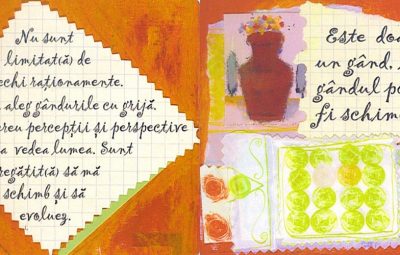 Nu sunt
limitat(ă) de
echi raționamente.
aleg gândurile cu grijă.
ereu percepții și perspective
a vedea lumea. Sunt
regătit(ă) să mă
schimb și să
evoluez.
Este doa
un gând.
gândul po
fi schim